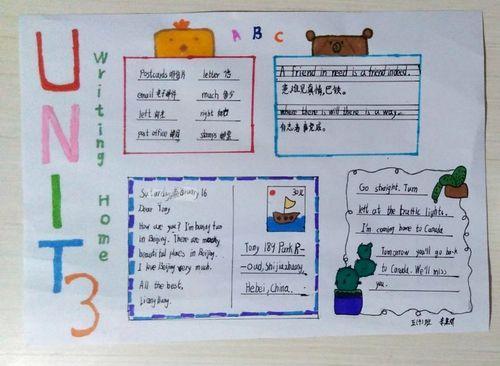 UNIT3
Writing Home
A B C
Postcards 明信片 letter 信
email 电子邮件 much 多少
left 向左 right
post office 邮局 stamps 邮票
A friend in need is a friend indeed.
患难见真情
where there is will there is a way.
有志者事竟成.
Saturday February 16
Dear Tony
How are you? I'm having fun
in Beijing. There are many
beautiful places in Beijing.
I love Beijing very much.
All the best,
Liang liang.
Tony 189 Park R-
oad, Shijiazhuang,
Hebei, China.
Go straight. Turn
left at the traffic lights.
I'm coming home to Canada
Tomorrow you'll go back
to Canada. We'll miss
you.